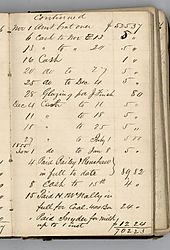 Continued
Nov 1 Amt brot over $ 525 37
6 Cash to Nov E 13 5 "
13 " to " 20 5 "
16 Cash 1 "
20 do to 27 5 "
25 do to Dec 4 5 "
28 Glazing for J Finch 50
Dec 4 Cash to 11 5 "
11 " to 18 5 "
18 " to 25 5 "
27 " to July 1 5 "
1855
Jan 1 do to Do 8 5 "
Paid Bailey &
in full to date 89 82
8 Cash to 15th 4 "
15 Paid H. McNally in
full for Coal 24 "
Paid Snyder for milk
up to 1 inst 12 24
702 23